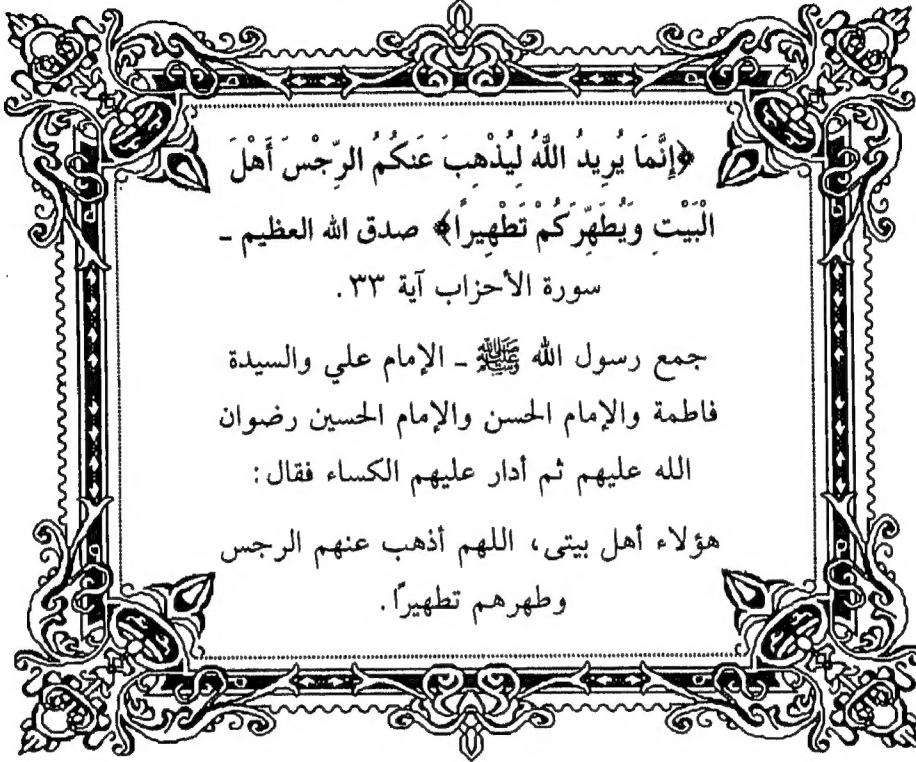 ﴿إِنَّمَا يُرِيدُ اللَّهُ لِيُذْهِبَ عَنكُمُ الرِّجْسَ أَهْلَ
الْبَيْتِ وَيُطَهِّرَكُمْ تَطْهِيرًا﴾ صدق الله العظيم ـ
سورة الأحزاب آية ٣٣.
جمع رسول الله ﷺ ـ الإمام علي والسيدة
فاطمة والإمام الحسن والإمام الحسين رضوان
الله عليهم ثم أدار عليهم الكساء فقال:
هؤلاء أهل بيتى، اللهم أذهب عنهم الرجس
وطهرهم تطهيراً.